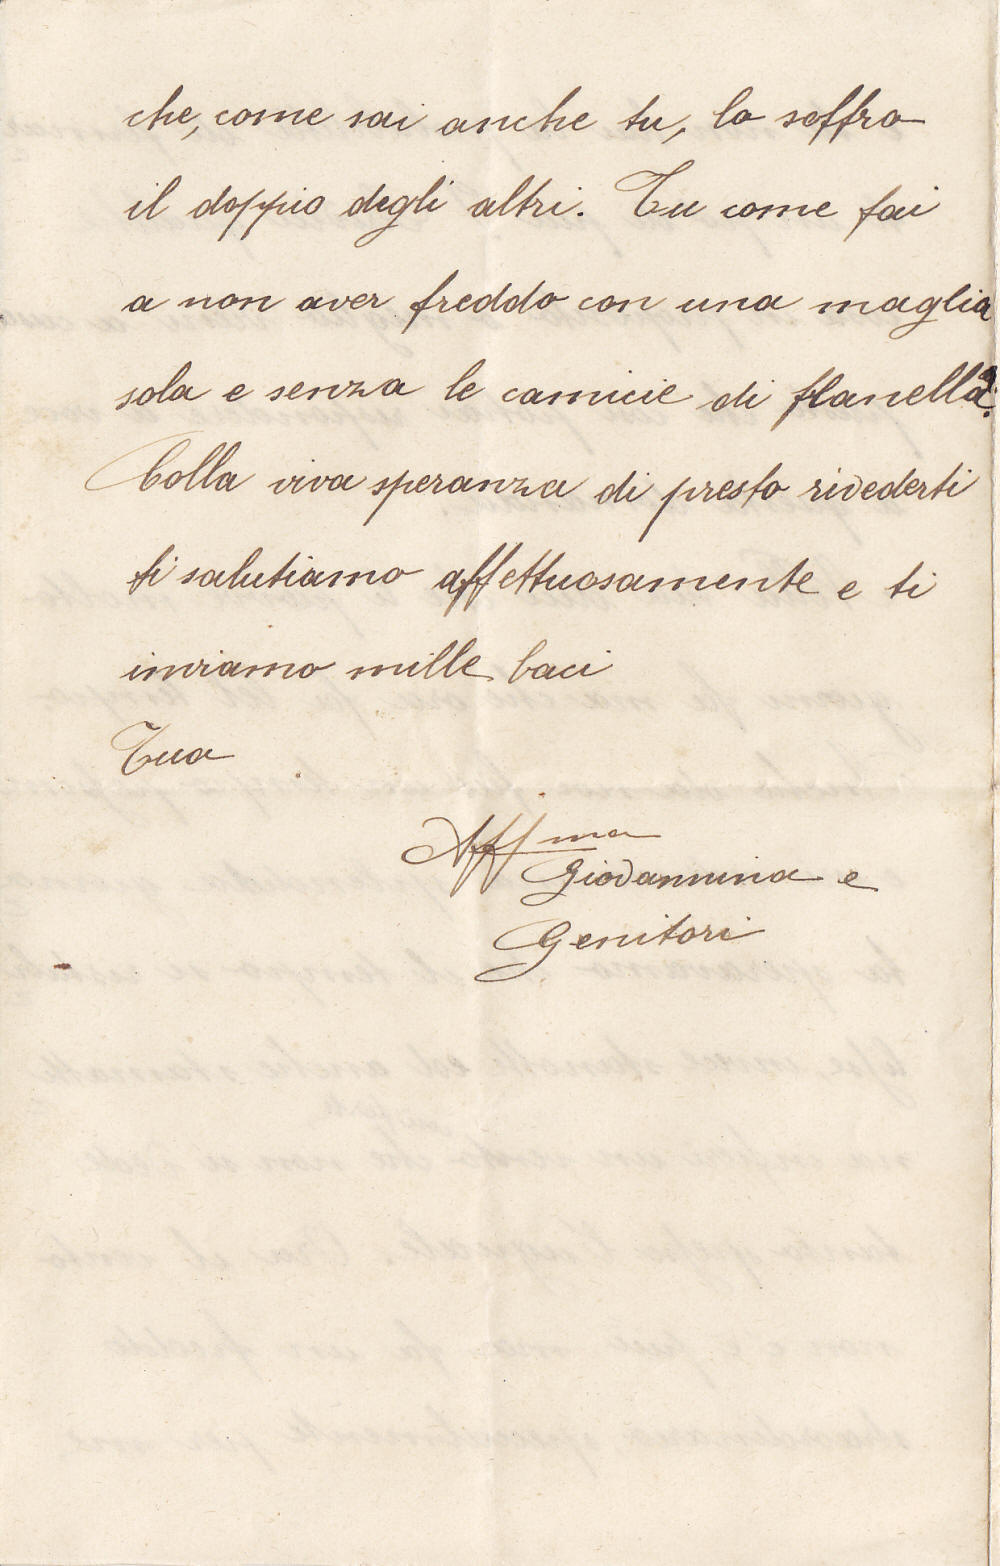 che, come sai anche tu, lo soffro
il doppio degli altri. Tu come fai
a non aver freddo con una maglia
sola e senza le camicie di flanella?
Colla viva speranza di presto rivederti
ti salutiamo affettuosamente e ti
inviamo mille baci
Tua
Affma
Giovannina e
Genitori